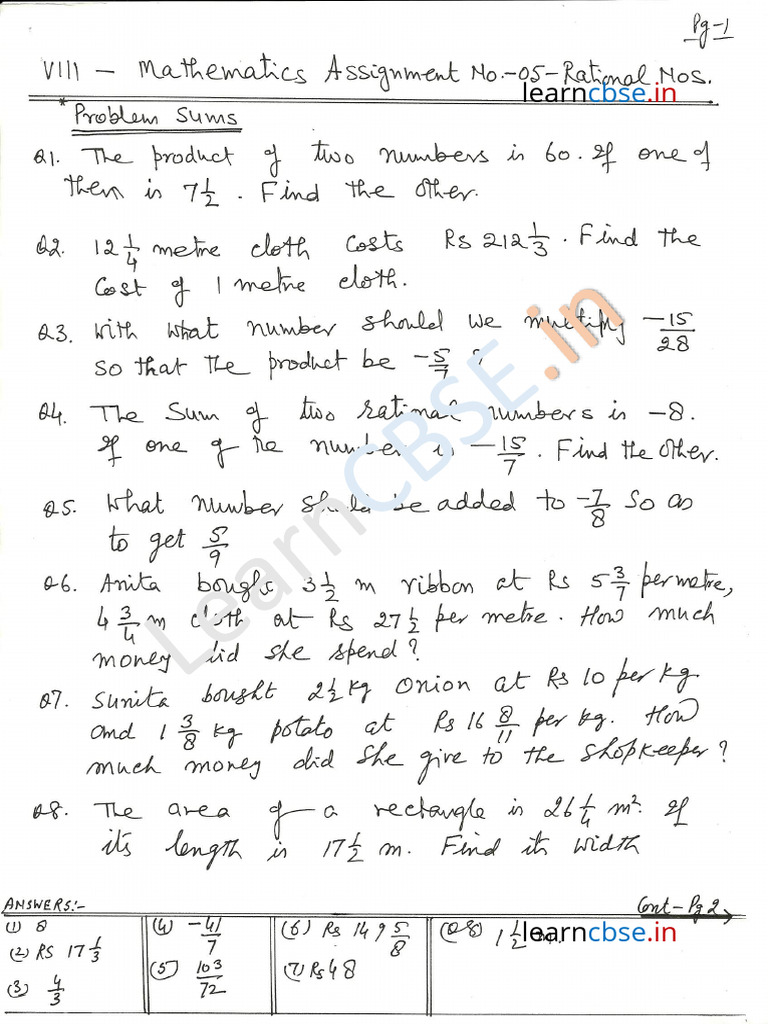 Pg-1
VIII - Mathematics Assignment No.-05-Rational Nos.
learncbse.in
* Problem Sums
Q1. The product of two numbers is 60. If one of
them is 7 1/2. Find the other.
Q2. 12 1/4 metre cloth costs Rs 212 1/3. Find the
cost of 1 metre cloth.
Q3. With what number should we multiply -15/28
so that the product be -5/7 ?
Q4. The Sum of two rational numbers is -8.
If one of the number is -15/7. Find the other.
Q5. What number should be added to -7/8 so as
to get 5/9
Q6. Anita bought 3 1/2 m ribbon at Rs 5 3/7 per metre,
4 3/4 m cloth at Rs 27 1/2 per metre. How much
money did she spend?
Q7. Sunita bought 2 1/2 kg onion at Rs 10 per kg
and 1 3/8 kg potato at Rs 16 8/11 per kg. How
much money did she give to the shopkeeper?
Q8. The area of a rectangle is 26 1/4 m². If
its length is 17 1/2 m. Find its width
LearnCBSE.in
ANSWERS:-
Cont-Pg 2
(1) 8
(2) RS 17 1/3
(3) 4/3
(4) -41/7
(5) 103/72
(6) Rs 149 5/8
(7) Rs 48
(Q8) 1 1/2 m.
learncbse.in